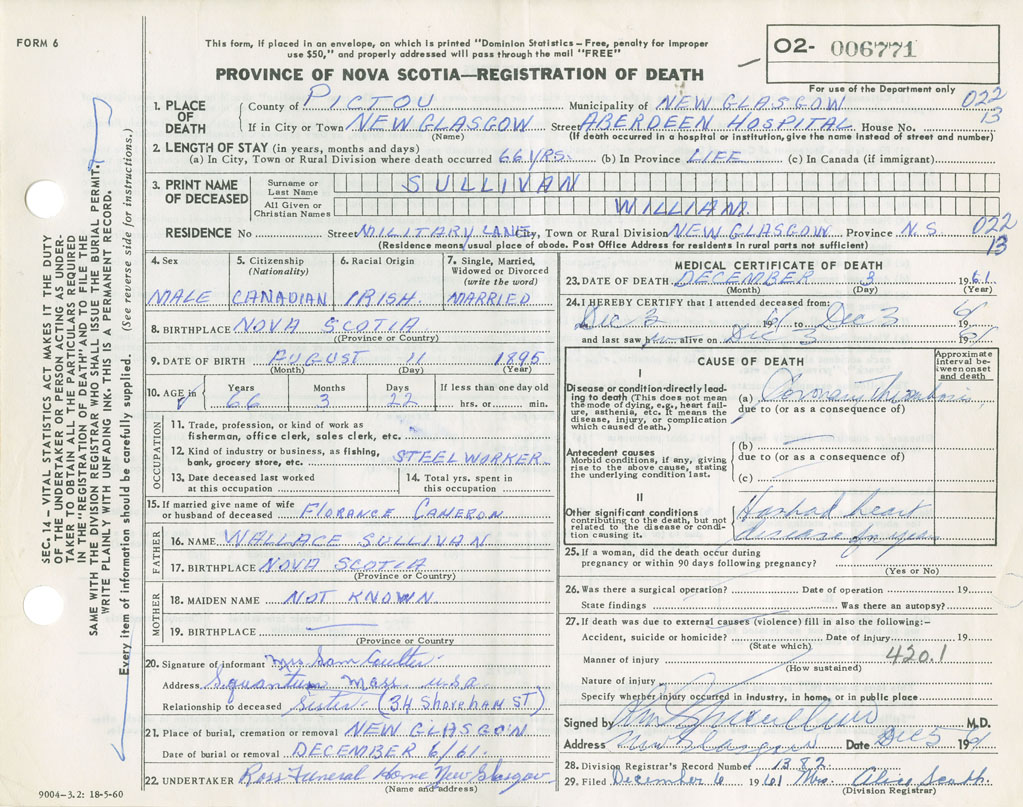 FORM 6
This form, if placed in an envelope, on which is printed "Dominion Statistics – Free, penalty for improper
use $50," and properly addressed will pass through the mail "FREE"
O2- 006771
For use of the Department only
PROVINCE OF NOVA SCOTIA—REGISTRATION OF DEATH
1. PLACE OF DEATH County of PICTOU Municipality of NEW GLASGOW 022
If in City or Town NEW GLASGOW Street ABERDEEN HOSPITAL House No. 13
(Name) (If death occurred in a hospital or institution, give the name instead of street and number)
2. LENGTH OF STAY (in years, months and days)
(a) In City, Town or Rural Division where death occurred 66 YRS. (b) In Province LIFE (c) In Canada (if immigrant)
3. PRINT NAME OF DECEASED Surname or Last Name SULLIVAN
All Given or Christian Names WILLIAM
RESIDENCE No Street MILITARY LANE City, Town or Rural Division NEW GLASGOW Province N.S 022
(Residence means usual place of abode. Post Office Address for residents in rural parts not sufficient) 13
4. Sex
MALE
5. Citizenship
(Nationality)
CANADIAN
6. Racial Origin
IRISH.
7. Single, Married,
Widowed or Divorced
(write the word)
MARRIED
8. BIRTHPLACE NOVA SCOTIA
(Province or Country)
9. DATE OF BIRTH AUGUST 11 1895
(Month) (Day) (Year)
10. AGE in Years Months Days If less than one day old
66 3 22 hrs. or min.
OCCUPATION
11. Trade, profession, or kind of work as
fisherman, office clerk, sales clerk, etc.
12. Kind of industry or business, as fishing,
bank, grocery store, etc. STEELWORKER
13. Date deceased last worked
at this occupation
14. Total yrs. spent in
this occupation
15. If married give name of wife
or husband of deceased FLORANCE CAMERON
FATHER
16. NAME WALLACE SULLIVAN
17. BIRTHPLACE NOVA SCOTIA
(Province or Country)
MOTHER
18. MAIDEN NAME NOT KNOWN
19. BIRTHPLACE
(Province or Country)
20. Signature of informant Mrs Sam Coulter
Address Squantum Mass. USA
Relationship to deceased Sister (34 Shoreham ST)
21. Place of burial, cremation or removal NEW GLASGOW
Date of burial or removal DECEMBER 6/61.
22. UNDERTAKER Ross Funeral Home New Glasgow
(Name and address)
MEDICAL CERTIFICATE OF DEATH
23. DATE OF DEATH DECEMBER 3 1961
(Month) (Day) (Year)
24. I HEREBY CERTIFY that I attended deceased from:
Dec 3 1961 to Dec 3 1961
and last saw him alive on Dec 3 1961
CAUSE OF DEATH
Approximate
interval be-
tween onset
and death
I
Disease or condition directly lead-
ing to death (This does not mean
the mode of dying, e.g., heart fail-
ure, asthenia, etc. It means the
disease, injury, or complication
which caused death.)
(a) Coronary Thrombosis
due to (or as a consequence of)
Antecedent causes
Morbid conditions, if any, giving
rise to the above cause, stating
the underlying condition last.
(b)
due to (or as a consequence of)
(c)
II
Other significant conditions
contributing to the death, but not
related to the disease or condi-
tion causing it.
Has had heart
disease for years
25. If a woman, did the death occur during
pregnancy or within 90 days following pregnancy?
(Yes or No)
26. Was there a surgical operation? Date of operation 19
State findings Was there an autopsy?
27. If death was due to external causes (violence) fill in also the following:–
Accident, suicide or homicide? Date of injury 19
(State which)
Manner of injury 420.1
(How sustained)
Nature of injury
Specify whether injury occurred in industry, in home, or in public place
Signed by M.D.
Address New Glasgow Date Dec 5 1961
28. Division Registrar's Record Number 1382
29. Filed December 6 1961 Mrs. Alice
(Division Registrar)
SEC. 14 – VITAL STATISTICS ACT MAKES IT THE DUTY
OF THE UNDERTAKER OR PERSON ACTING AS UNDER-
TAKER TO OBTAIN ALL THE PARTICULARS REQUIRED
IN THE "REGISTRATION OF DEATH" AND TO FILE THE
SAME WITH THE DIVISION REGISTRAR WHO SHALL ISSUE THE BURIAL PERMIT.
WRITE PLAINLY WITH UNFADING INK. THIS IS A PERMANENT RECORD.
Every item of information should be carefully supplied. (See reverse side for instructions.)
9004–3.2: 18-5-60